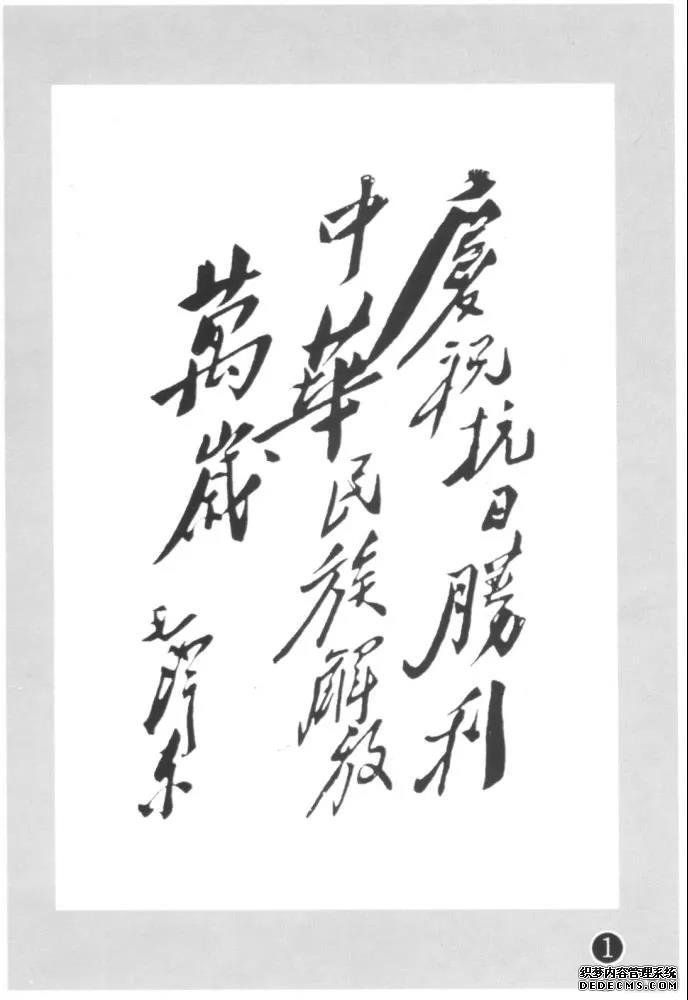 慶祝抗日勝利
中華民族解放
萬歲
毛澤东
1
织梦内容管理系统
DEDECMS.COM